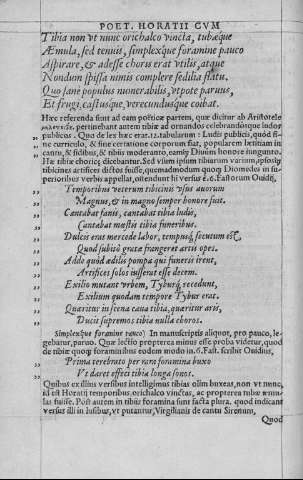 POET. HORATII CVM
Tibia non vt nunc orichalco vincta, tubæque
Æmula, sed tenuis, simplexque foramine pauco
Aspirare, & adesse choris erat vtilis, atque
Nondum spissa nimis complere sedilia flatu.
Quo sane populus numerabilis, vtpote paruus,
Et frugi, castusque, verecundusque coibat.
Hæc referenda sunt ad eam poëticæ partem, quæ dicitur ab Aristotele
pertinebant autem tibiæ ad ornandos celebrandosque ludos
publicos. Quo de lex hæc erat. 12. tabularum: Ludis publicis, quod si-
ne curriculo, & sine certatione corporum fiat, popularem lætitiam in
cantu, & fidibus, & tibiis moderanto, eamq; Diuûm honore iungunto.
Hæ tibiæ choricę dicebantur. Sed vsum ipsum tibiarum varium, ipsosq;
tibicines artifices dictos fuisse, quemadmodum quoq; Diomedes in su-
perioribus verbis appellat, ostendunt hi versus è. 6. Fastorum Ouidij,
Temporibus veterum tibicinis vsus auorum
Magnus, & in magno semper honore fuit.
Cantabat fanis, cantabat tibia ludis,
Cantabat mœstis tibia funeribus.
Dulcis erat mercede labor, tempusq́; secutum est,
Quod subitò gratæ frangeret artis opes.
Adde quòd ædilis pompa qui funeris irent,
Artifices solos iusserat esse decem.
Exilio mutant vrbem, Tyburq́; recedunt,
Exilium quodam tempore Tybur erat.
Quæritur in scena caua tibia, quæritur aris,
Ducit supremos tibia nulla choros.
Simplexque foramine pauco) In manuscriptis aliquot, pro pauco, le-
gebatur, paruo. Quæ lectio propterea minus esse proba videtur, quod
de tibiæ quoq; foraminibus eodem modo in. 6. Fast. scribit Ouidius,
Prima terebrato per rara foramina buxo
Vt daret effeci tibia longa sonos.
Quibus ex illius versibus intelligimus tibias olim buxeas, non vt nunc,
id est Horatij temporibus orichalco vinctas, ac propterea tubæ æmu-
las fuisse. Post autem in tibiis foramina sunt facta plura. quod indicant
versus illi in lusibus, vt putantur, Virgilianis de cantu Sirenum,
Quod